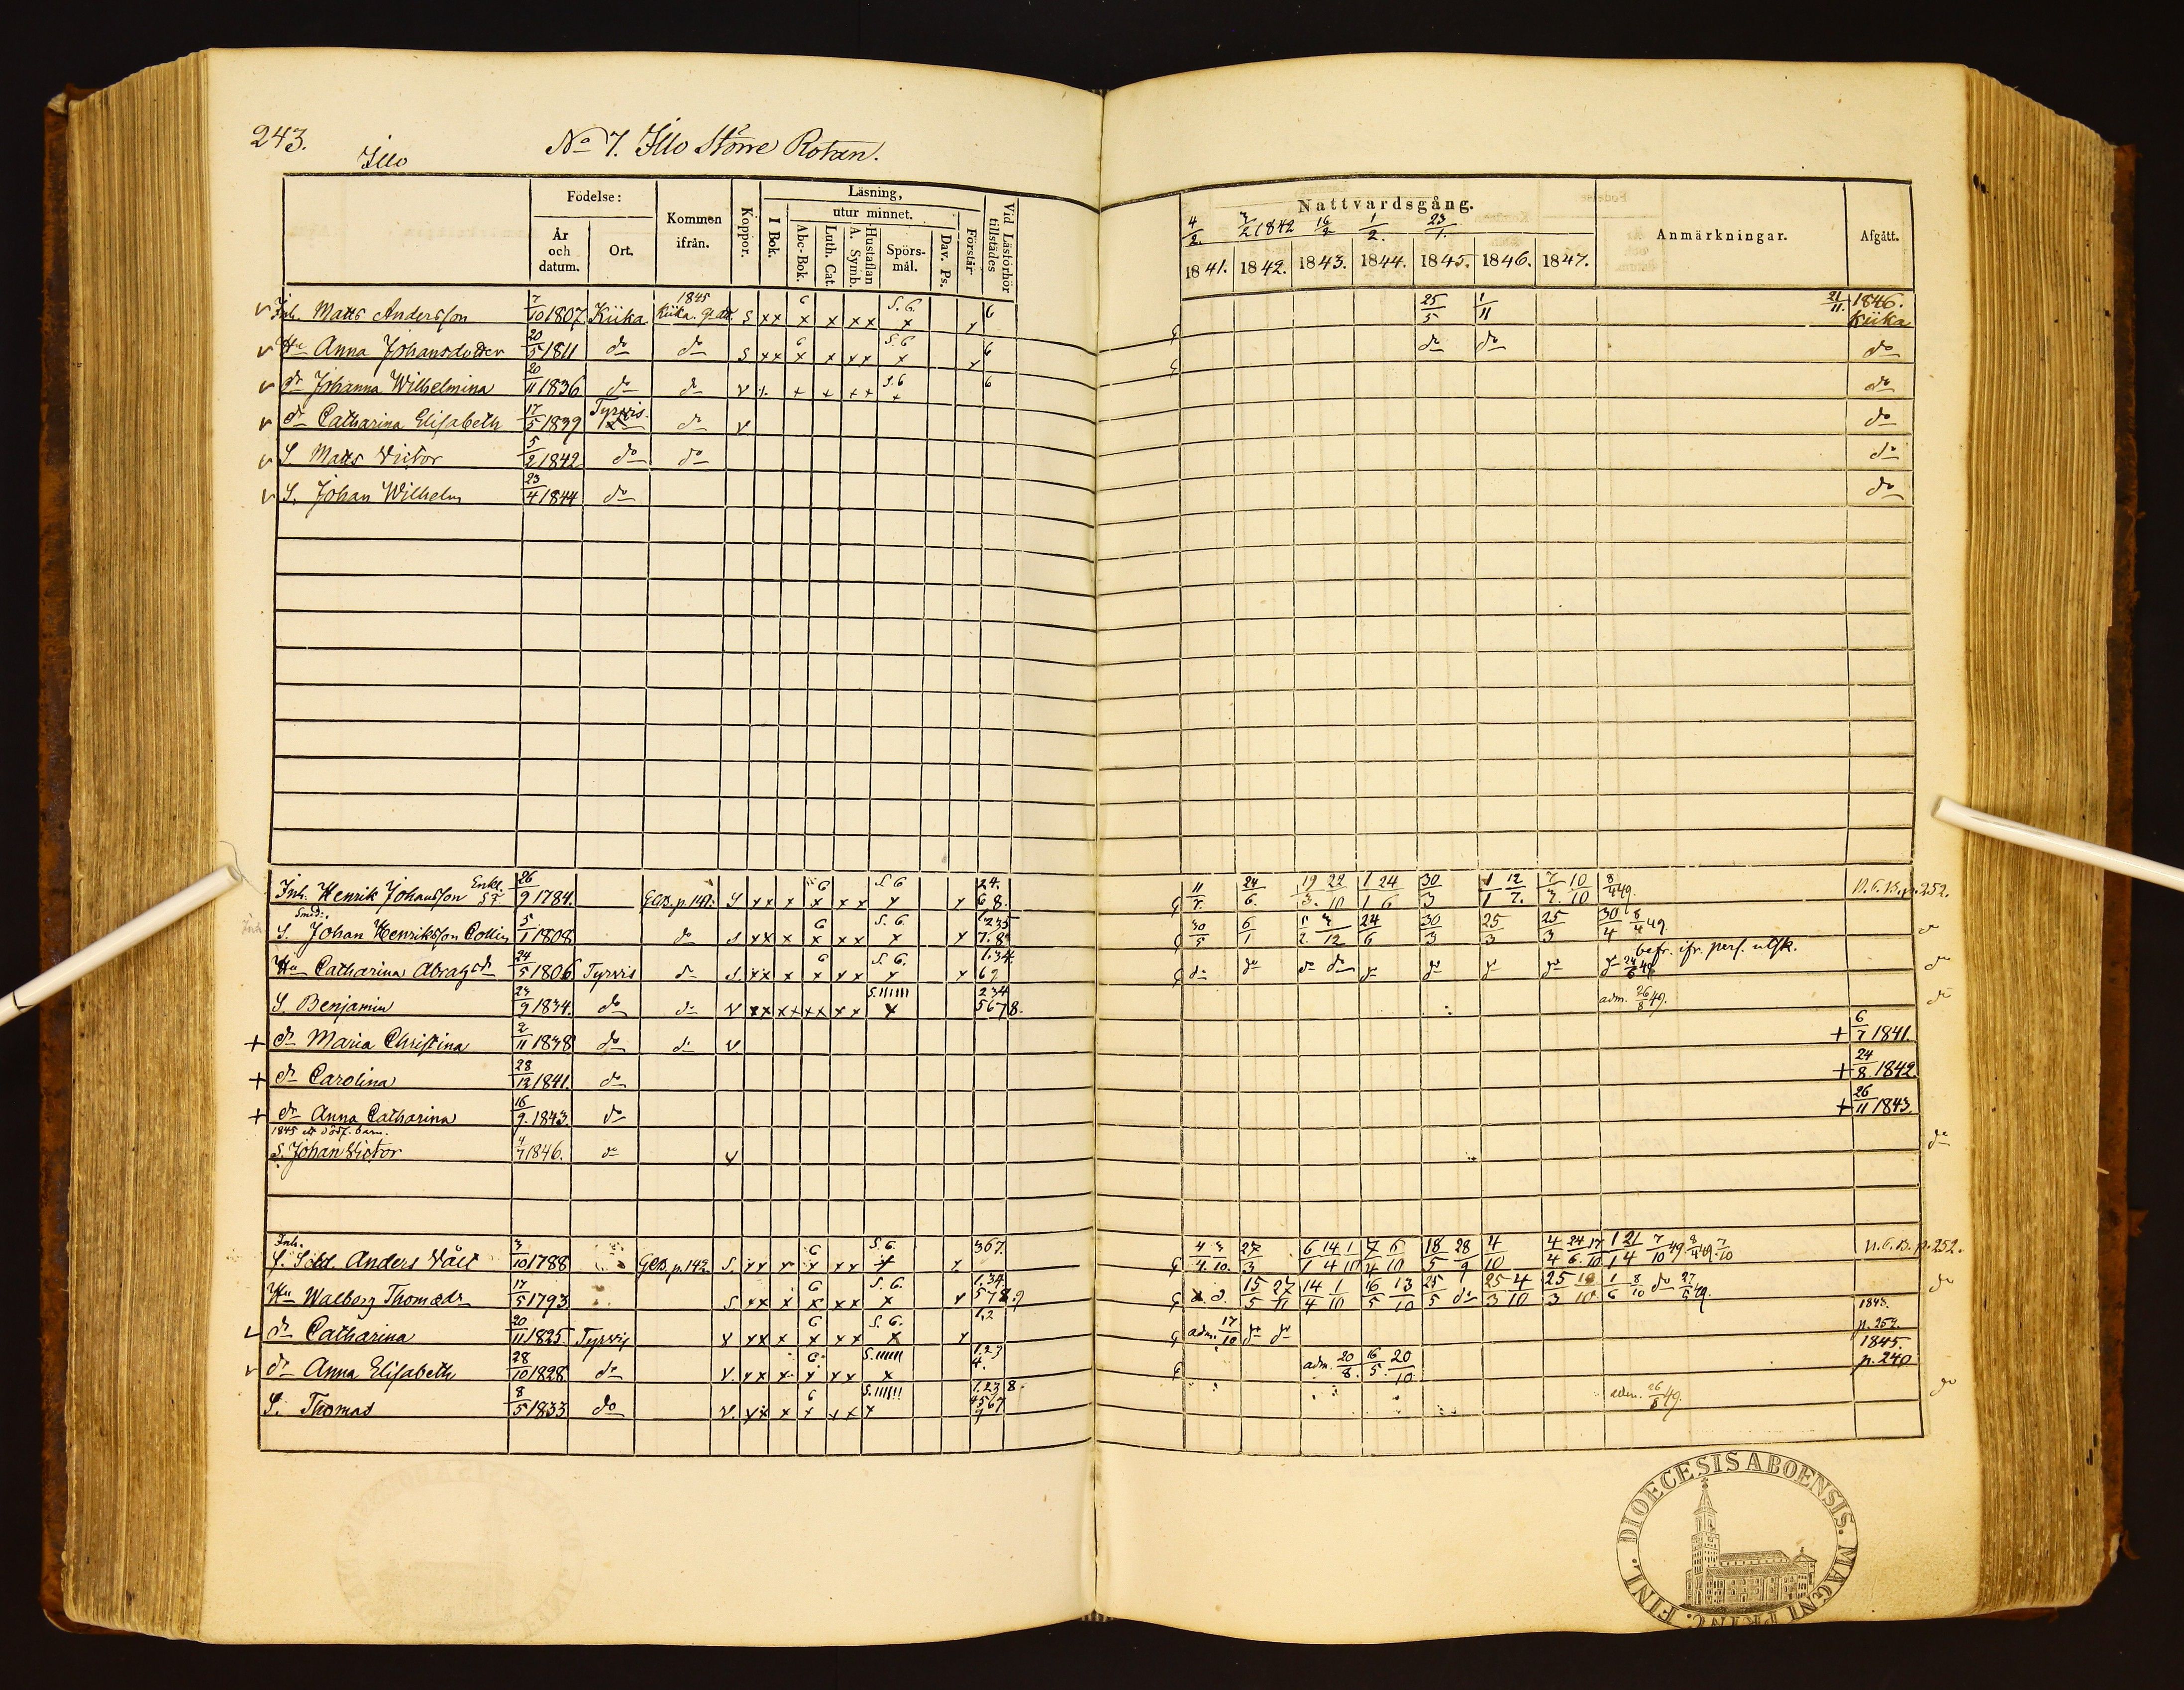 243.
Illo
No 7. Illo Större Rotan.
Födelse:
År och datum.
Ort.
Kommen ifrån.
Koppor.
Läsning,
I Bok.
utur minnet.
Abc-Bok.
Luth. Cat.
A. Symb.
Hustaflan
Spörs-mål.
Dav. Ps.
Förstår
Vid Läsförhör tillstädes
Nattvardsgång.
4/2. 7/2 1842 16/2 1/2. 23/1.
1841. 1842. 1843. 1844. 1845. 1846. 1847.
Anmärkningar.
Afgått.
Inh. Matts Andersson 7/10 1807 Kiika 1845 Kiika S x x 6 x x x x S. 6. x x 6 25/5 1/11 21/11. 1846. Kiika
Hu Anna Johansdotter 20/5 1811 do do S x x 6 x x x x S. 6 x x 6 do do do
dr Johanna Wilhelmina 20/11 1836 do do v x x x x x S. 6 x 6 do
dr Catharina Elisabeth 17/5 1839 Tyrvis. do v do
S. Matts Victor 5/2 1842 do do do
S. Johan Wilhelm 23/4 1844 do do
Inh. Henrik Johansson Enkl. 26/9 1784. GCB. p. 141. S x x x 6 x x x S. 6 x x 24. 68. 11/7. 24/6. 19/3. 22/10 1/1 24/6 30/3 1/1 12/7. 7/7. 10/10 8/4 49. N.C.B. p. 252.
Inh. Smed. S. Johan Henriksson Collin 5/1 1808 do S x x x 6 x x x S. 6. x x 1235 7.8. 30/5 6/1 24/6 30/3 25/3 25/3 30/4 8/4 49. do
befr. ifr. pers. utsk.
Hu Catharina Abrahsdr 24/5 1806 Tyrvis do S. x x x 6 x x x S. 6. x x 1.34. 69 do do do do do do do do do
S. Benjamin 23/9 1834. do do v x x x x x x x x S. IIIIII x 234 5678. adm. 26/8 49. do
+ dr Maria Christina 2/11 1838 do do v + 6/7 1841.
+ dr Carolina 28/12 1841. do + 24/8. 1842.
+ dr Anna Catharina 16/9. 1843. do + 26/11 1843.
1845 ett dödf. barn.
S. Johan Victor 4/7 1846. do v do
Inh. S. Sold. Anders Wäit 3/10 1788 GCB. p. 142. S. x x x 6 x x x S. 6. x x 367. 4/4. 3/10. 27/3 6/1 14/4 1/10 7/4 6/10 18/5 28/9 4/10 4/4 24/6 17/10 1/1 21/4 7/10 49. 8/4 49. 7/10 N.C.B. p. 252.
Hu Walborg Thomædr 17/5 1793 S x x x 6 x x x S. 6. x x 1.34 578.9 15/5 27/11 14/4 1/10 16/5 13/10 25/5 do 25/3 4/10 25/3 10/10 1/6 8/10 do 27/5 49. do
dr Catharina 20/11 1825. Tyrvis v x x x 6 x x x S. 6. x x 1,2 adm. 17/10 do do 1843. p. 253.
dr Anna Elisabeth 28/10 1828 do v. x x x 6 x x x S. IIIII x 1.23 4. adm. 20/8. 16/5. 20/10 1845. p. 240
S. Thomas 8/5 1833 do v. x x x 6 x x x S. IIIIII x 1.23 8. 4567 9 adm. 26/8 49. do
DIOECESIS ABOENSIS. MAGNI PRINC. FINL.